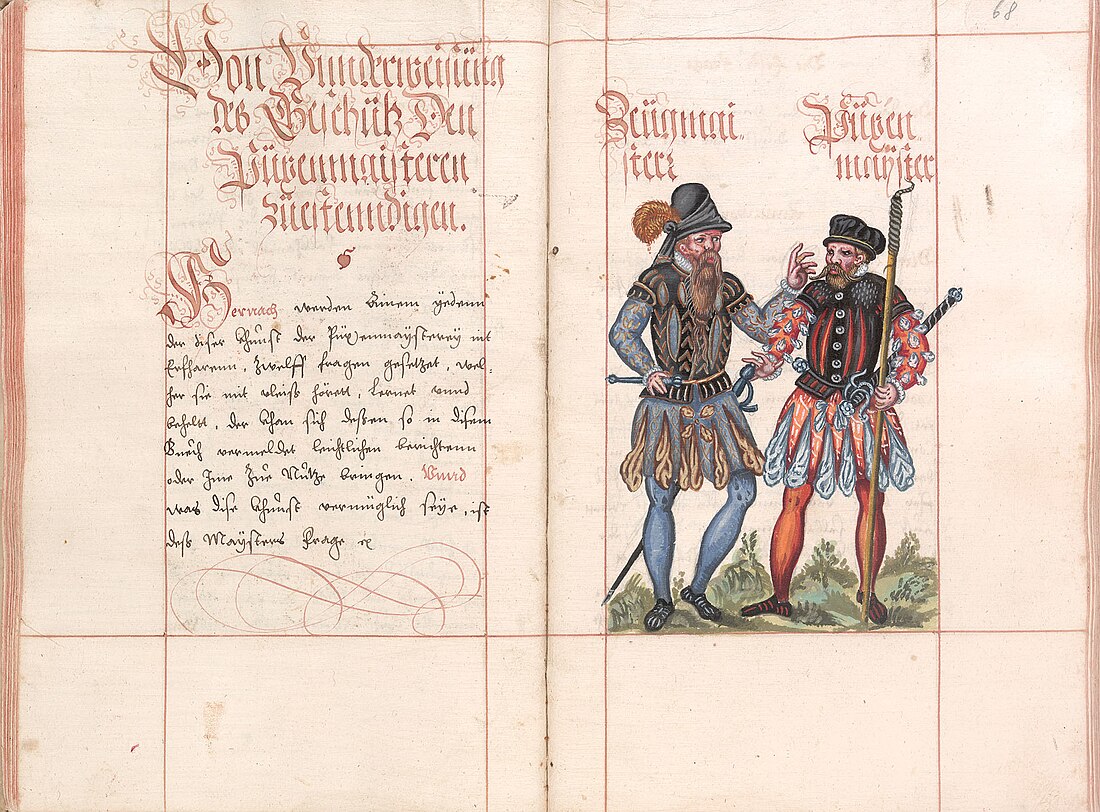 Von Vnnderweisüng
des Geschütz Den
Püxenmaisteren
züestenndigen.
Hernach werden Einem yedenn
der diser Khunst der Püxenmaysterey nit
Erfharenn, Zwelff fragen gesetzet, wel-
her sie mit vleiß hörett, Lernet vnnd
behelt, der khan sich deßen so in disem
Buech vermeldet leichtlichen berichtenn
oder Ime Zue Nutze bringen. Vnnd
was dise khunst vermüglich seye, ist
deß Maysters frage
68
Zeügmai.
sterr
Püxen.
mayster